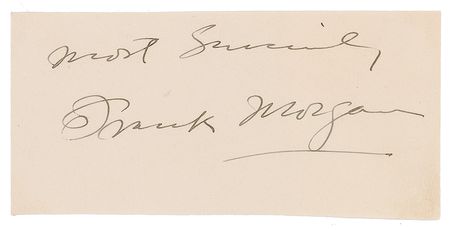 Most Sincerely
Frank Morgan